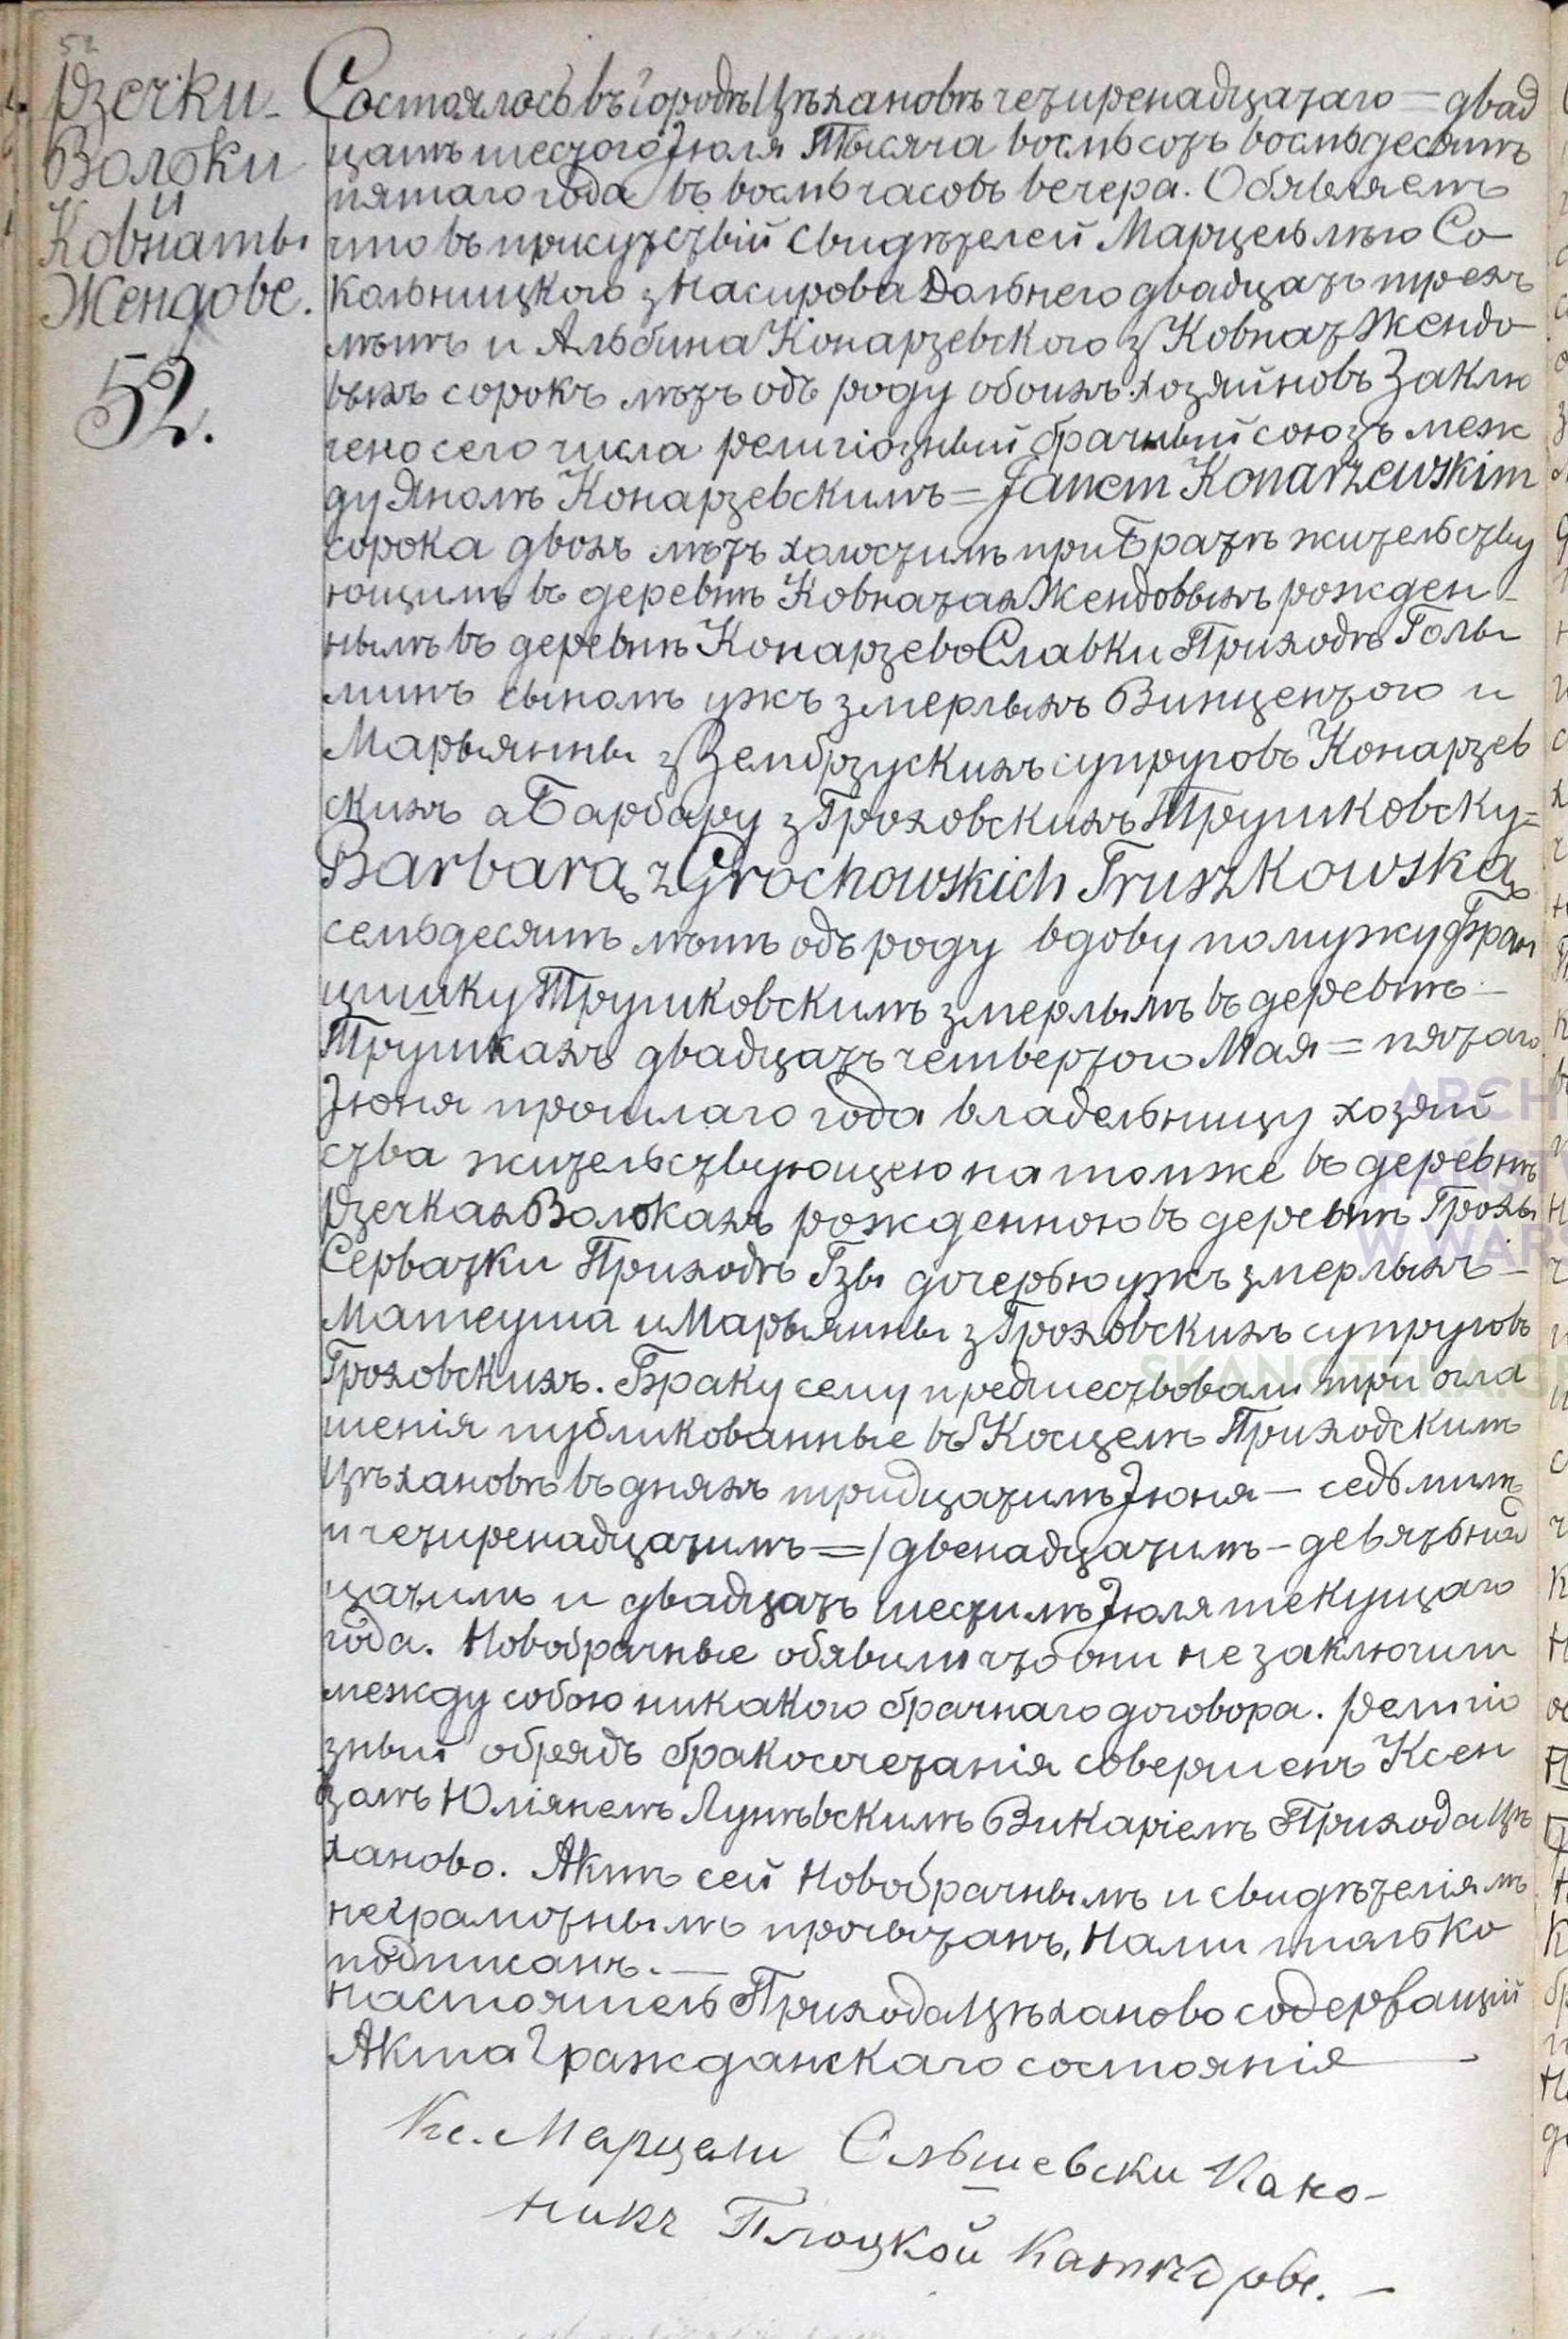 52
Рзечки-
Волоки
и
Ковнаты
Жендове.
52.
Состоялось въ городѣ Цѣхановѣ четиренадцатаго = двад
цать шестого Іюля Тысяча восмьсотъ восмьдесятъ
пятаго года въ восмь часовъ вечера. Обявляемъ
что въ присутствій свидѣтелей Марцель лѣю Со
кольницкого з Насирова Дольнего двадцать трехъ
лѣтъ и Альбина Конарзевского з Ковнат Жендо
выхъ сорокъ лѣтъ одъ роду обоихъ хозяйновъ Заклю
чено сего числа религіозный брачный союзъ меж
ду Яномъ Конарзевскимъ = Janem Konarzewskim
сорока двохъ лѣтъ холостимъ при Братѣ жительству
ющимъ въ деревнѣ Ковнатах Жендовыхъ рожден-
нымъ въ деревнѣ Конарзево Славки Приходѣ Голы
минъ сыномъ ужъ змерлыхъ Винцентого и
Марьянны з Зембрзускихъ супруговъ Конарзев
скихъ а Барбару з Гроховскихъ Трушковску =
Barbarą z Grochowskich Truszkowską
семьдесятъ лѣтъ одъ роду вдову по мужу Фран
цишку Трушковскимъ змерлымъ въ деревнѣ —
Трушкахъ двадцать четвертого Мая = пятаго
Іюня прошлаго года владельницу хозяй
ства жительствующею на томже въ деревнѣ
Рзечках Волокахъ рожденною въ деревнѣ Грохы
Серватки Приходѣ Гзы дочерью ужъ змерлыхъ —
Матеуша и Марьянны з Гроховскихъ супруговъ
Гроховскихъ. Браку сему предшествовали три огла
шенія публикованные въ Косцелѣ Приходскимъ
Цѣхановѣ въ дняхъ тридцатимъ Іюня — седьмимъ
и четиренадцатимъ = / двенадцатимъ — девятьнад
цатимъ и двадцать шестимъ Іюля текущаго
года. Новобрачные обявили что они не заключили
между собою никакого брачнаго договора. Религіо
зный обрядъ бракосочетанія совершенъ Ксен
дзомъ Юліянемъ Лунѣвскимъ Викаріемъ Прихода Цѣ
ханово. Актъ сей Новобрачнымъ и свидѣтеліямъ
неграмотнымъ прочытанъ, Нами только
подписанъ. —
Настоятель Прихода Цѣханово содержащій
Акта Гражданскаго состоянія —
Кс. Марцели Ольшевски Кано-
никъ Плоцкой Катедры. —
ARCH
PAŃST
W WARS
SKANOTEKA.G